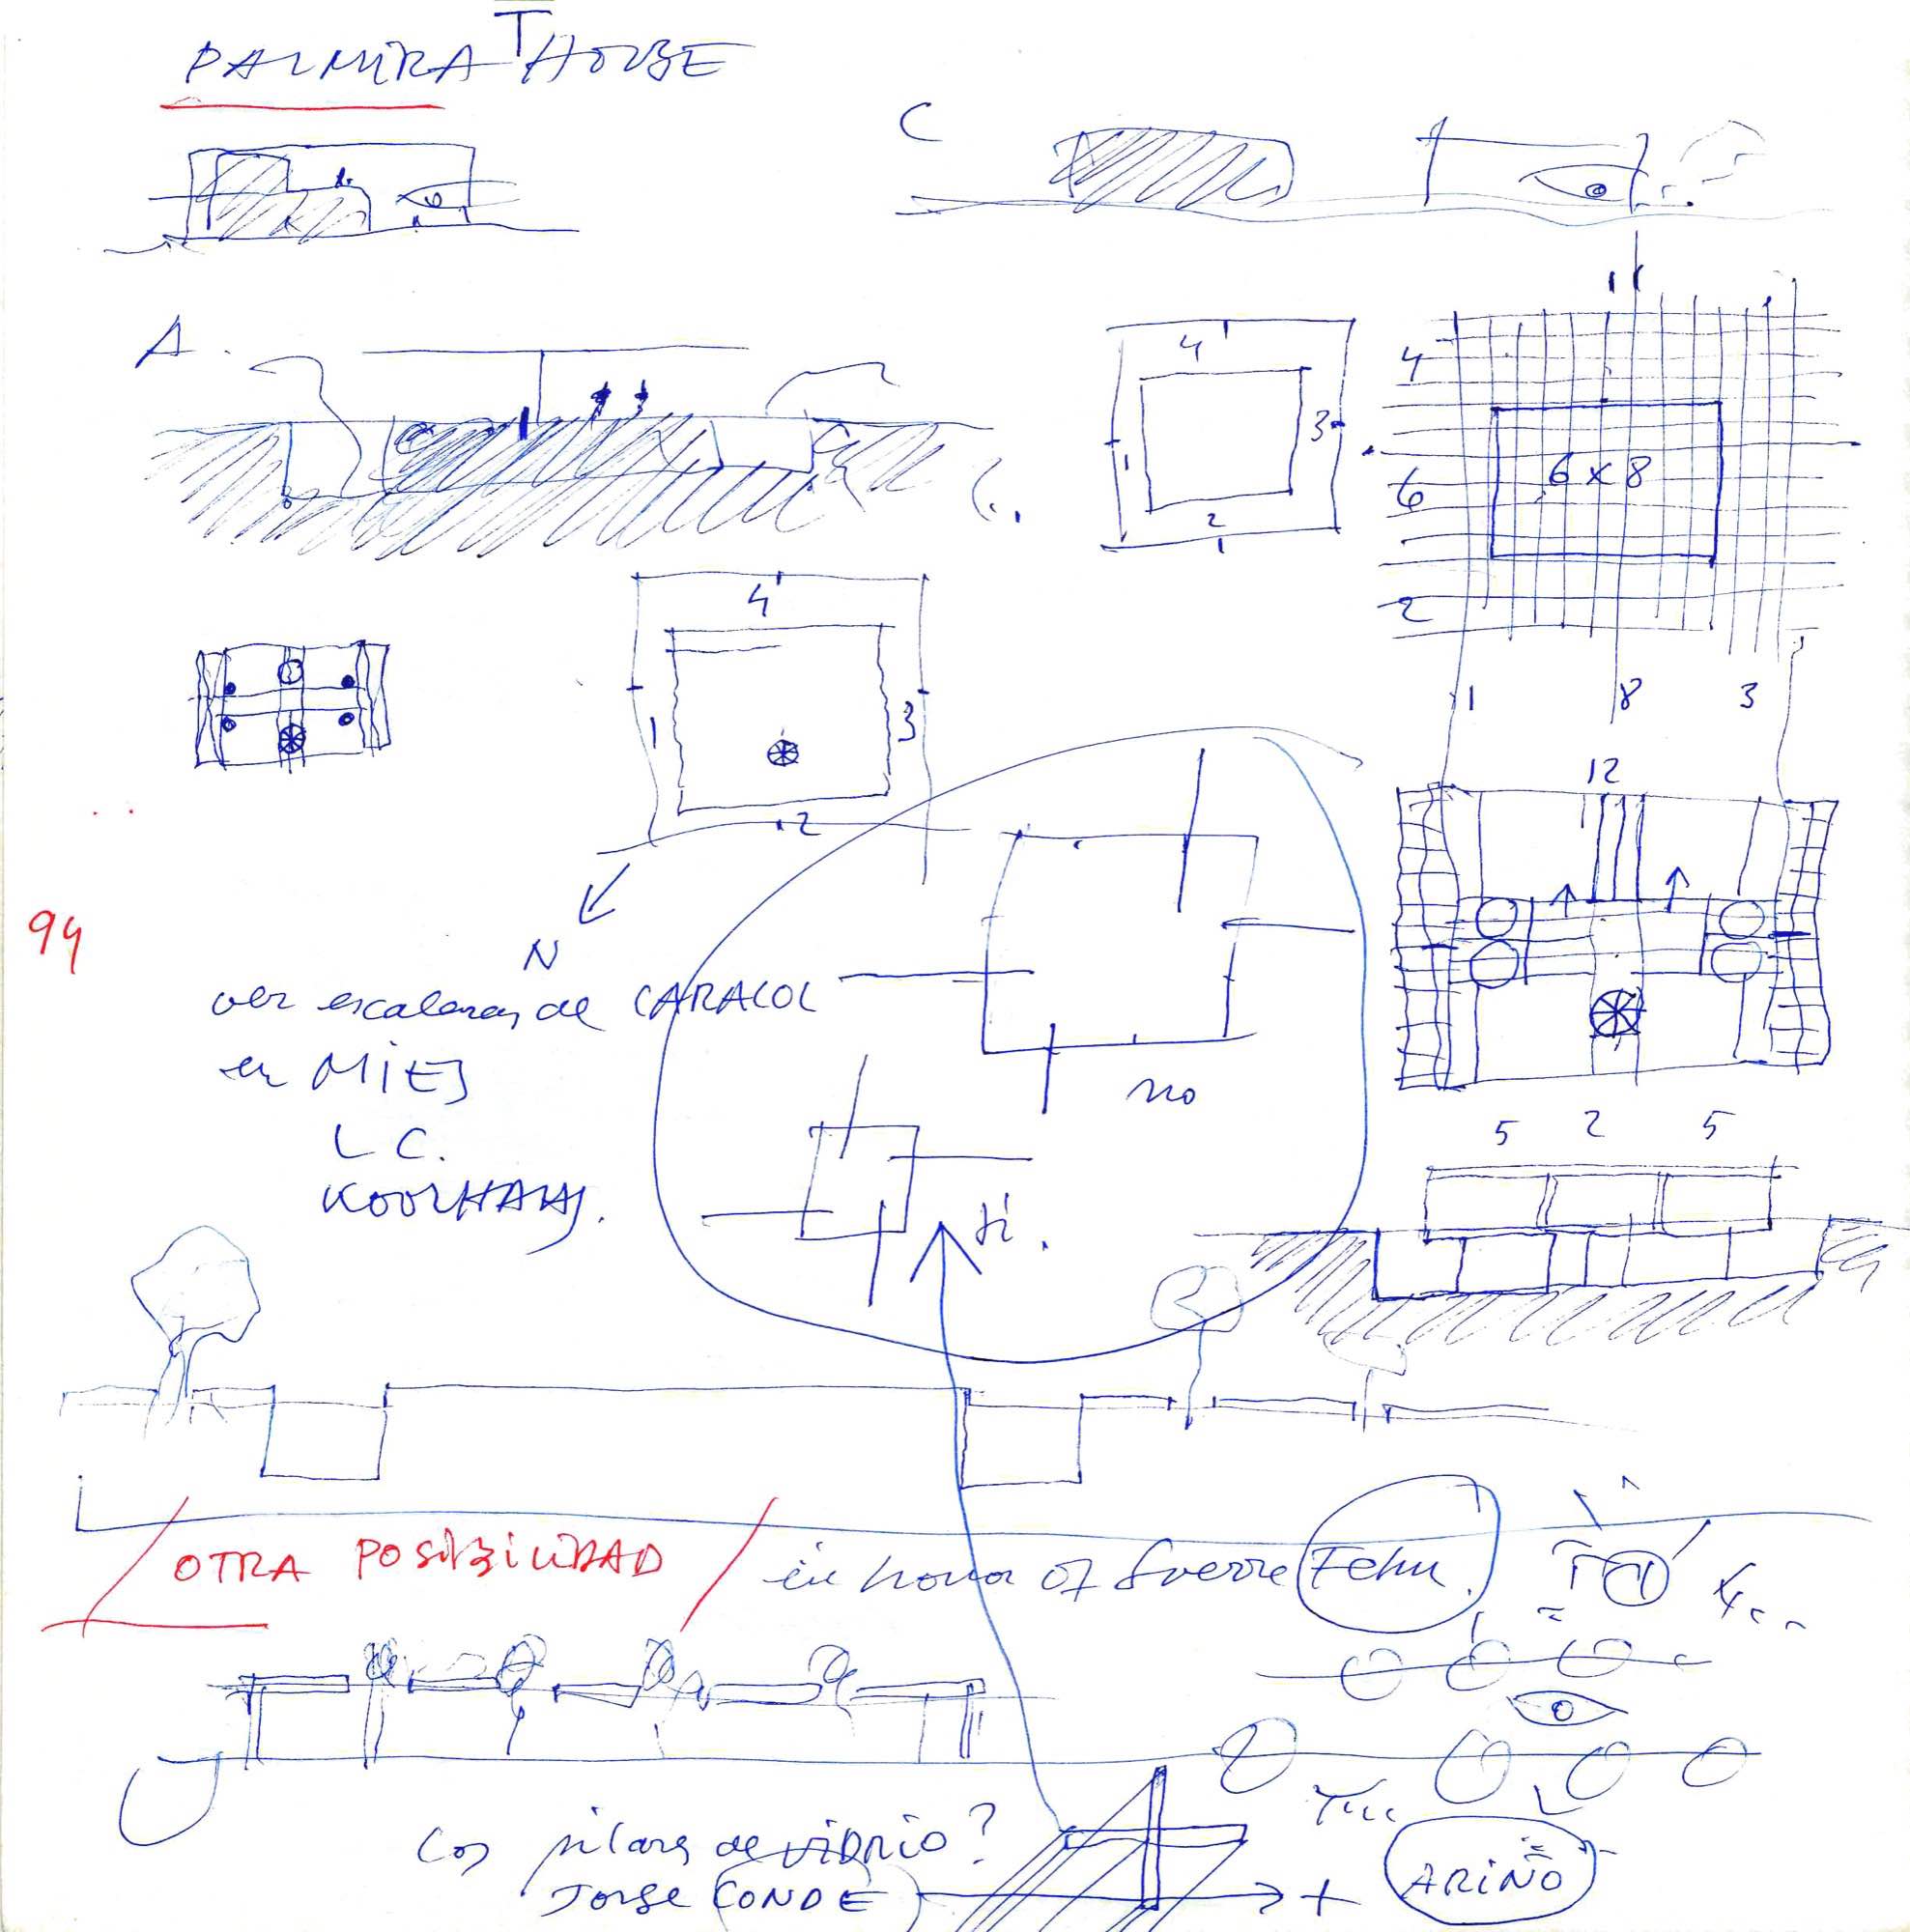 PALMIRA HOUSE
T
C
A.
4
3
1
2
4
6
2
6 x 8
1
8
3
4
1
3
2
12
N
94
ver escaleras de CARACOL
en MIES
L C.
KOOLHAAS.
no
si.
5 2 5
OTRA POSIBILIDAD
in honor of Sverre Fehn.
Los pilares de VIDRIO?
Jorge CONDE
+
ARIÑO